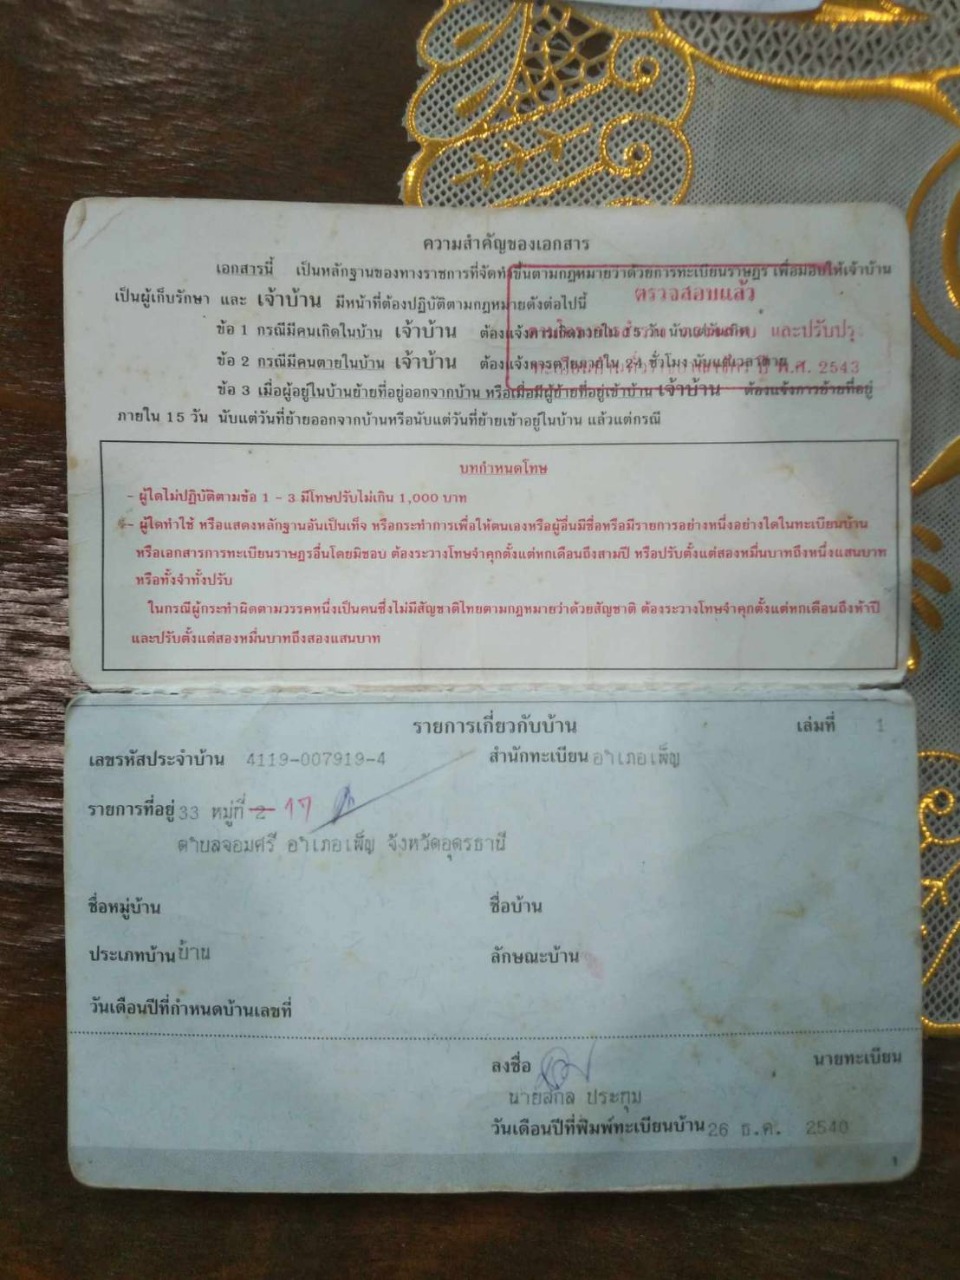 ความสำคัญของเอกสาร
เอกสารนี้ เป็นหลักฐานของทางราชการที่จัดทำขึ้นตามกฎหมายว่าด้วยการทะเบียนราษฎร เพื่อมอบให้เจ้าบ้าน
เป็นผู้เก็บรักษา และ เจ้าบ้าน มีหน้าที่ต้องปฏิบัติตามกฎหมายดังต่อไปนี้
ตรวจสอบแล้ว
ข้อ 1 กรณีมีคนเกิดในบ้าน เจ้าบ้าน ต้องแจ้งการเกิดภายใน 15 วัน นับแต่วันเกิด
และปรับปรุง
ข้อ 2 กรณีมีคนตายในบ้าน เจ้าบ้าน ต้องแจ้งการตายภายใน 24 ชั่วโมง นับแต่เวลาตาย
พ.ศ. 2543
ข้อ 3 เมื่อผู้อยู่ในบ้านย้ายที่อยู่ออกจากบ้าน หรือเมื่อมีผู้ย้ายที่อยู่เข้าบ้าน เจ้าบ้าน ต้องแจ้งการย้ายที่อยู่
ภายใน 15 วัน นับแต่วันที่ย้ายออกจากบ้านหรือนับแต่วันที่ย้ายเข้าอยู่ในบ้าน แล้วแต่กรณี
บทกำหนดโทษ
- ผู้ใดไม่ปฏิบัติตามข้อ 1 - 3 มีโทษปรับไม่เกิน 1,000 บาท
- ผู้ใดทำใช้ หรือแสดงหลักฐานอันเป็นเท็จ หรือกระทำการเพื่อให้ตนเองหรือผู้อื่นมีชื่อหรือมีรายการอย่างหนึ่งอย่างใดในทะเบียนบ้าน
หรือเอกสารการทะเบียนราษฎรอื่นโดยมิชอบ ต้องระวางโทษจำคุกตั้งแต่หกเดือนถึงสามปี หรือปรับตั้งแต่สองหมื่นบาทถึงหนึ่งแสนบาท
หรือทั้งจำทั้งปรับ
ในกรณีผู้กระทำผิดตามวรรคหนึ่งเป็นคนซึ่งไม่มีสัญชาติไทยตามกฎหมายว่าด้วยสัญชาติ ต้องระวางโทษจำคุกตั้งแต่หกเดือนถึงห้าปี
และปรับตั้งแต่สองหมื่นบาทถึงสองแสนบาท
รายการเกี่ยวกับบ้าน เล่มที่ 1
เลขรหัสประจำบ้าน 4119-007919-4 สำนักทะเบียน อำเภอเพ็ญ
รายการที่อยู่ 33 หมู่ที่ 2 17
ตำบลจอมศรี อำเภอเพ็ญ จังหวัดอุดรธานี
ชื่อหมู่บ้าน ชื่อบ้าน
ประเภทบ้าน บ้าน ลักษณะบ้าน
วันเดือนปีที่กำหนดบ้านเลขที่
ลงชื่อ นายทะเบียน
นายสกล ประทุม
วันเดือนปีที่พิมพ์ทะเบียนบ้าน 26 ธ.ค. 2540
1